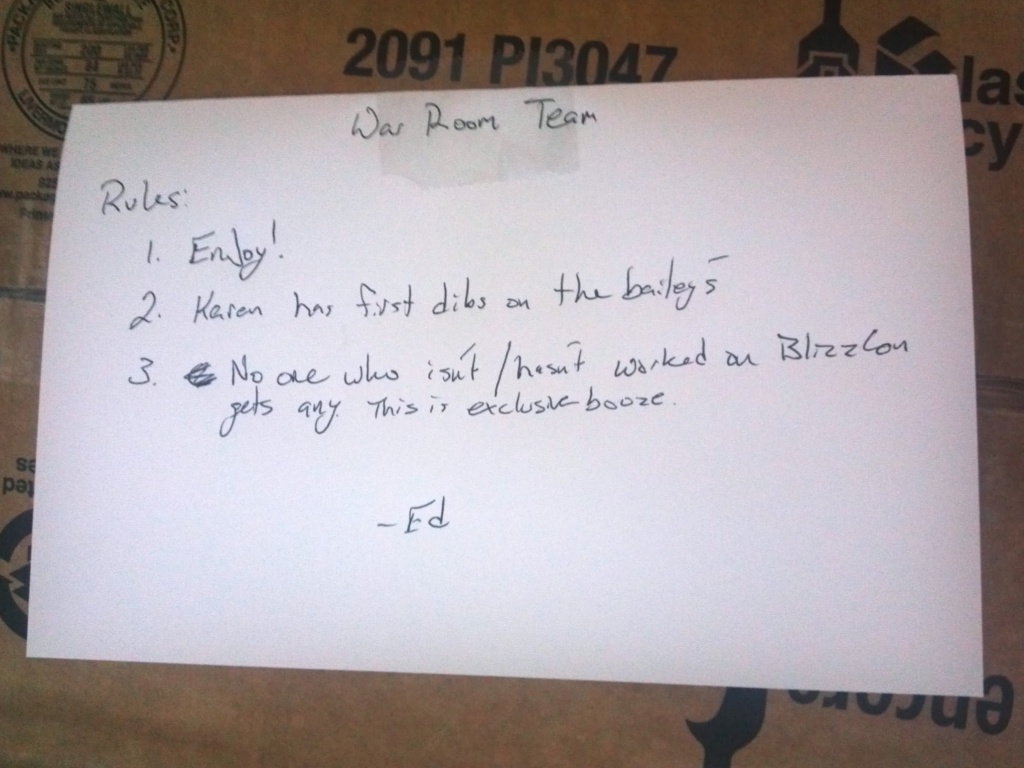 SINGLEWALL
LIVERMO
2091 PI3047
las
cy
WHERE WE
IDEAS A
War Room Team
Rules:
1. Enjoy!
2. Karen has first dibs on the baileys
3. No one who isn't/hasn't worked on BlizzCon
gets any. This is exclusive booze.
- Ed
encore